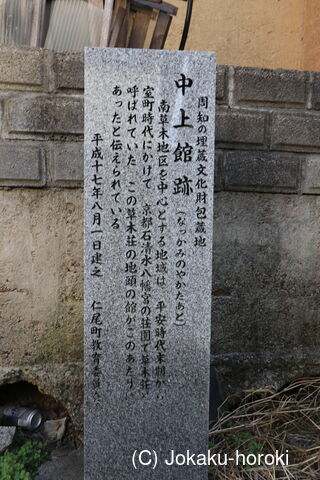 周知の埋蔵文化財包蔵地
中上館跡
(なっかみのやかたあと)
南草木地区を中心とする地域は 平安時代末期から
室町時代にかけて 京都石清水八幡宮の荘園で草木荘と
呼ばれていた この草木荘の地頭の館がこのあたりに
あったと伝えられている
平成十七年八月一日建之 仁尾町教育委員会
(C) Jokaku-horoki